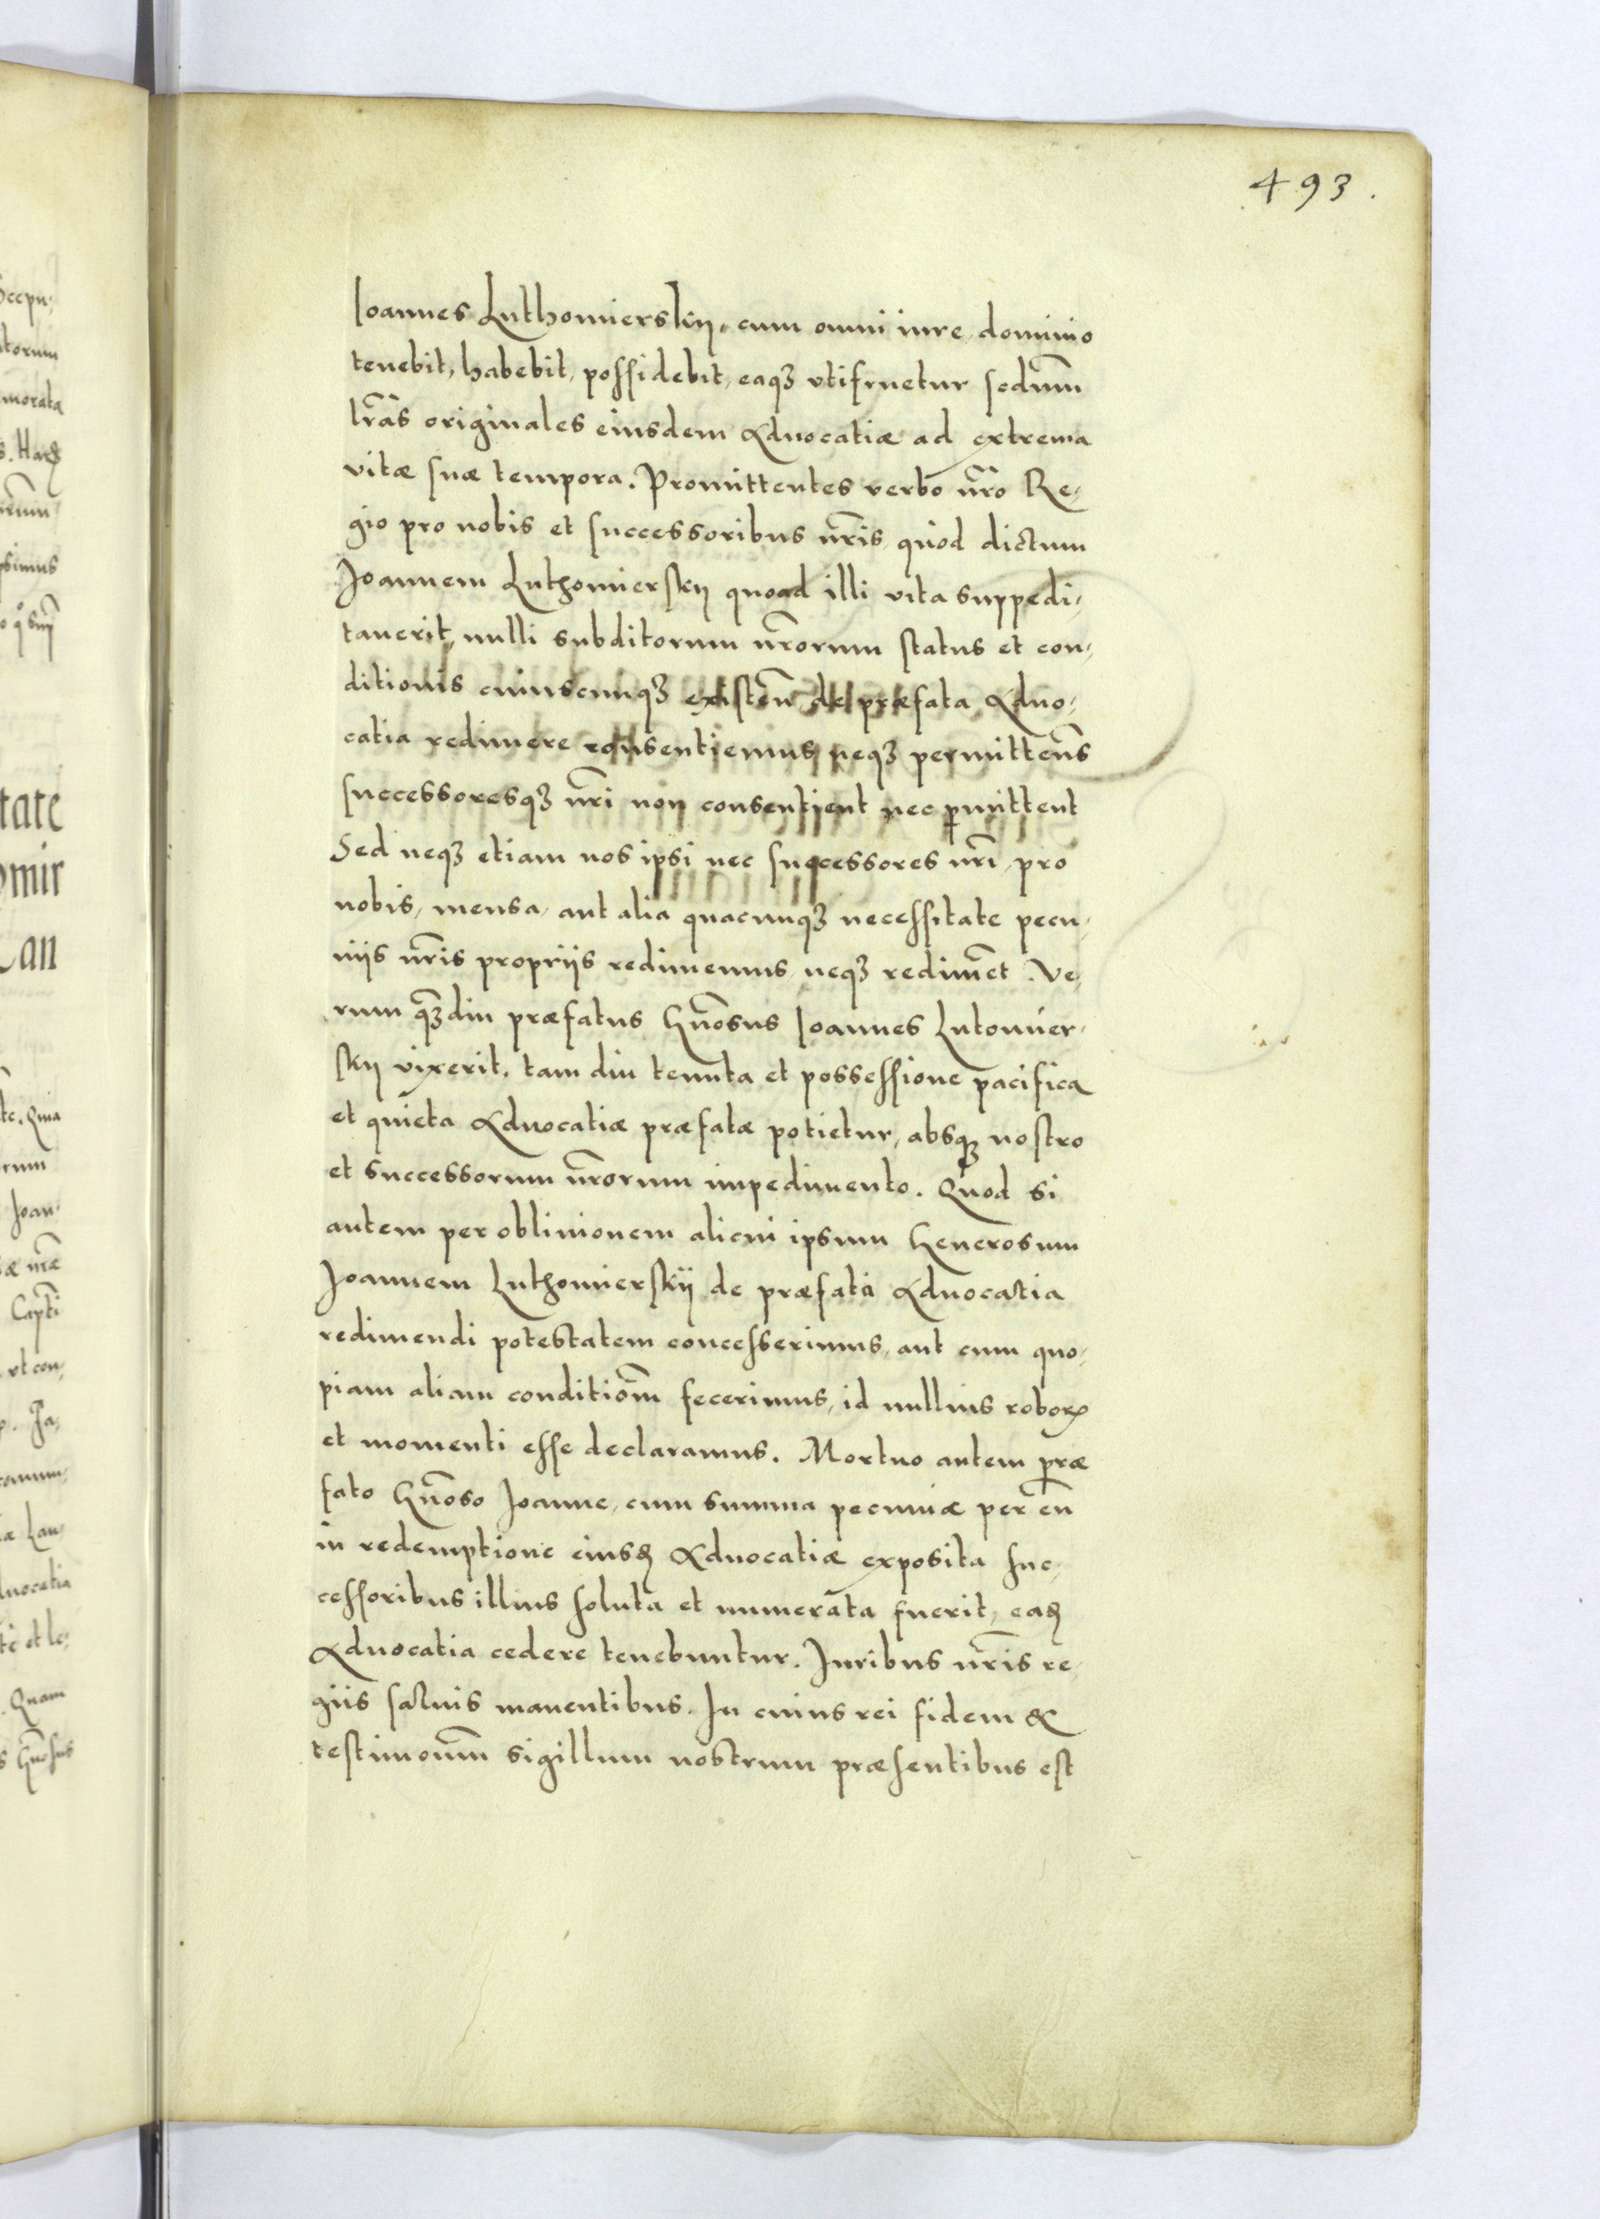 493.
Ioannes Luthomierskij, cum omni iure, dominio
tenebit, habebit, possidebit, eaqꝫ vtifruetur secdūm
lrās originales eiusdem Aduocatiæ ad extrema
vitæ suæ tempora. Promittentes verbo nr̄o Re-
gio pro nobis et successoribus nr̄is, quod dictum
Joannem Luthomierskij quoad illi vita suppedi-
tauerit, nulli subditorum nr̄orum status et con-
ditionis cuiuscunqꝫ existeñ de præfata Aduo-
catia redimere consentiemus neqꝫ permittem̄s
successoresqꝫ nr̄i non consentient nec ꝑmittent
Sed neqꝫ etiam nos ipsi nec successores nr̄i, pro
nobis, mensa, aut alia quacunqꝫ necessitate pecu-
niis nr̄is propriis redimemus, neqꝫ redimēt. Ve-
rum qꝫdiu præfatus Gn̄osus Ioannes Lutomier-
skij vixerit, tam diu tenuta et possessione pacifica
et quieta Aduocatiæ præfatæ potietur, absqꝫ nostro
et successorum nr̄orum impedimento. Quod si
autem per obliuionem alicui ipsum Generosum
Joannem Luthomierskij de præfata Aduocatia
redimendi potestatem concesserimus, aut cum quo-
piam aliam conditiōm fecerimus, id nullius roboris
et momenti esse declaramus. Mortuo autem præ
fato Gn̄oso Joanne, cum summa pecuniæ per eū
in redemptione eiusꝺ Aduocatiæ exposita suc-
cessoribus illius soluta et numerata fuerit, eaꝺ
Aduocatia cedere tenebuntur. Juribus nr̄is re-
giis saluis manentibus. In cuius rei fidem &
testimoniūm sigillum nostrum præsentibus est
Ioan-
vt con-
Quam
tate
Quia